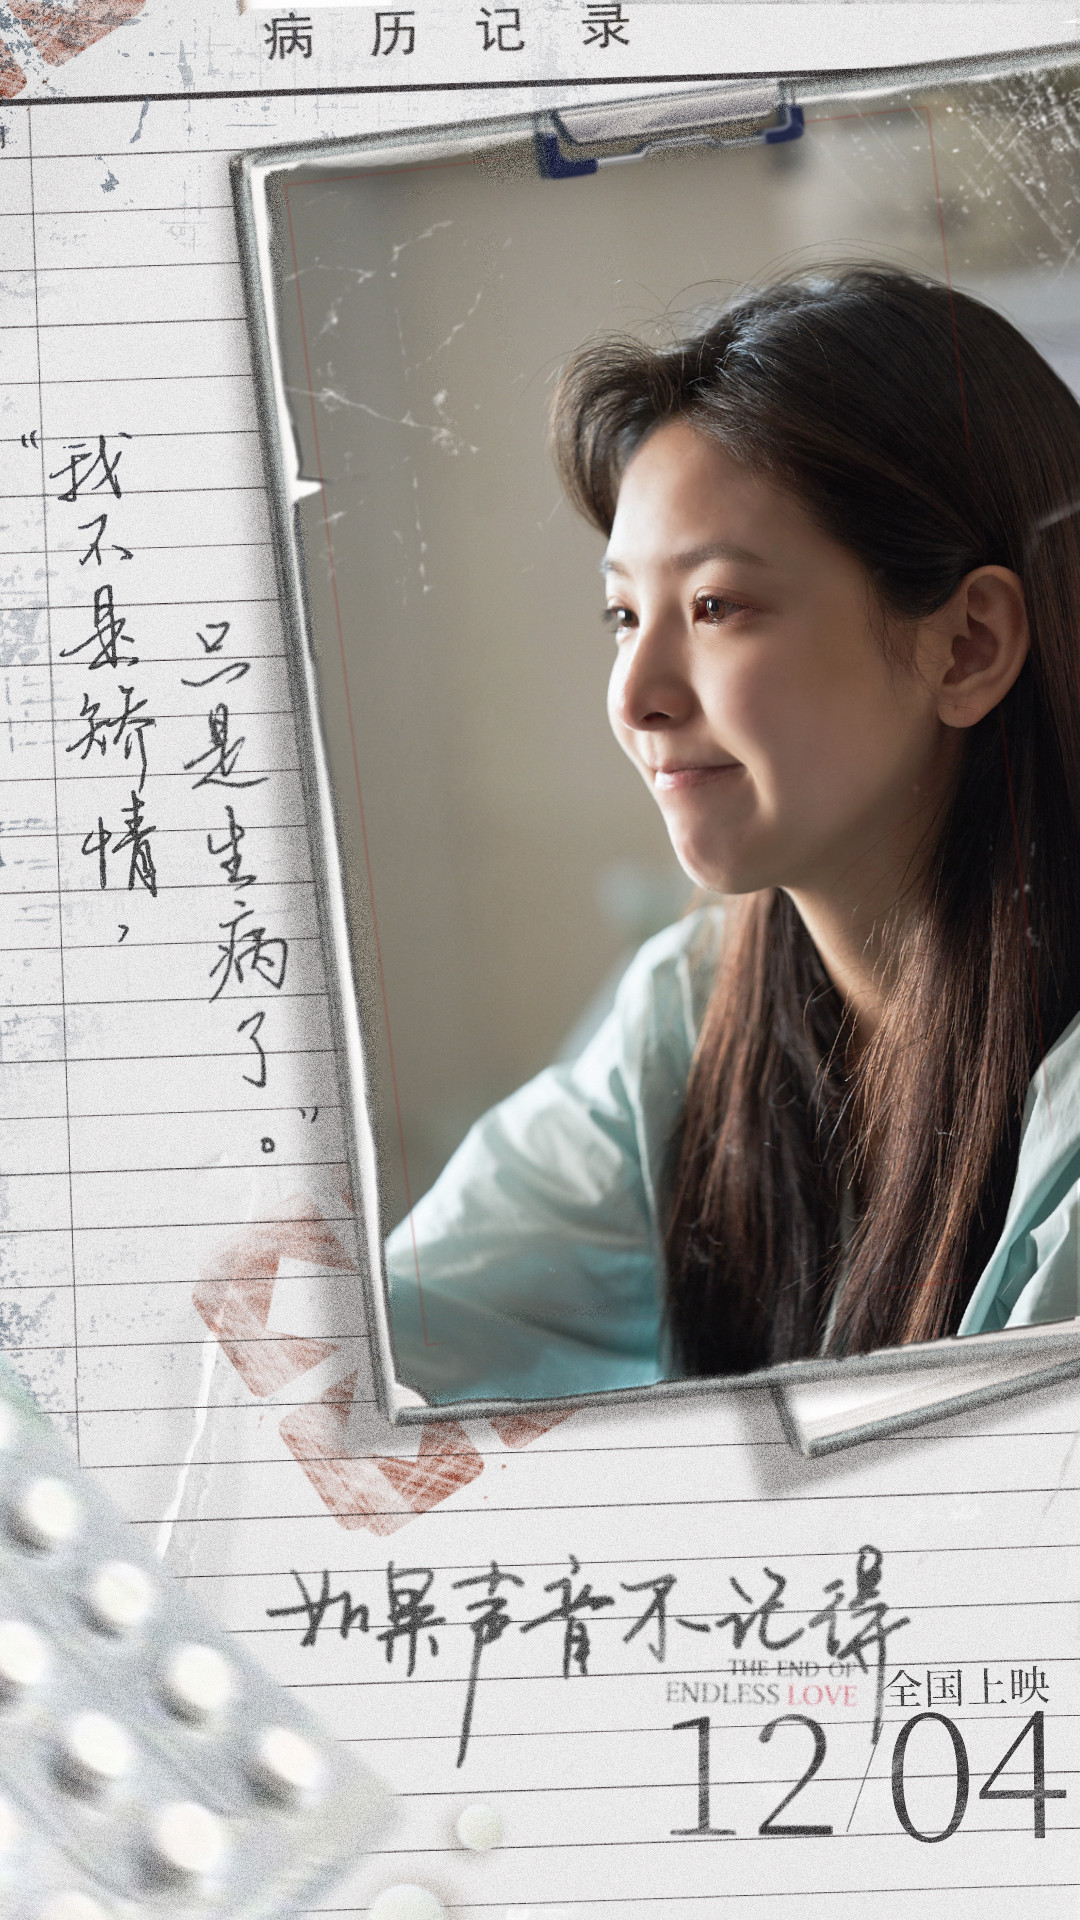 病历记录
“我不是矫情，
只是生病了。”
如果声音不记得
THE END OF
ENDLESS LOVE
全国上映
12/04